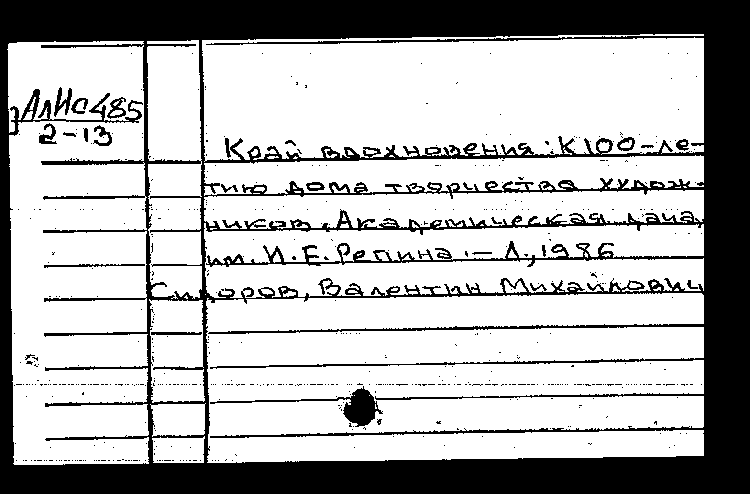 АлИс485
2-13
Край вдохновения: К 100-ле-
тию дома творчества худож-
ников „Академическая дача"
им. И.Е.Репина.— Л., 1986
Сидоров, Валентин Михайлович